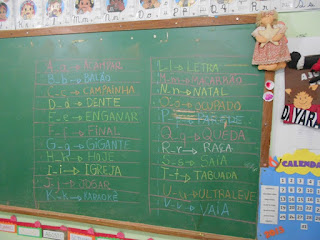 A-a→ACAMPAR
B-b→BALÃO
C-c→CAMPAINHA
D-d→DENTE
E-e→ENGANAR
F-f→FINAL
G-g→GIGANTE
H-h→HOJE
I-i→IGREJA
J-j→JOGAR
K-k→KARAOKÊ
L-l→LETRA
M-m→MACARRÃO
N-n→NATAL
O-o→OCUPADO
Q-q→QUEDA
R-r→RAÇA
S-s→SAIA
T-t→TABUADA
U-u→ULTRALEVE
V-v→VAIA
CALENDÁ
DAYAR